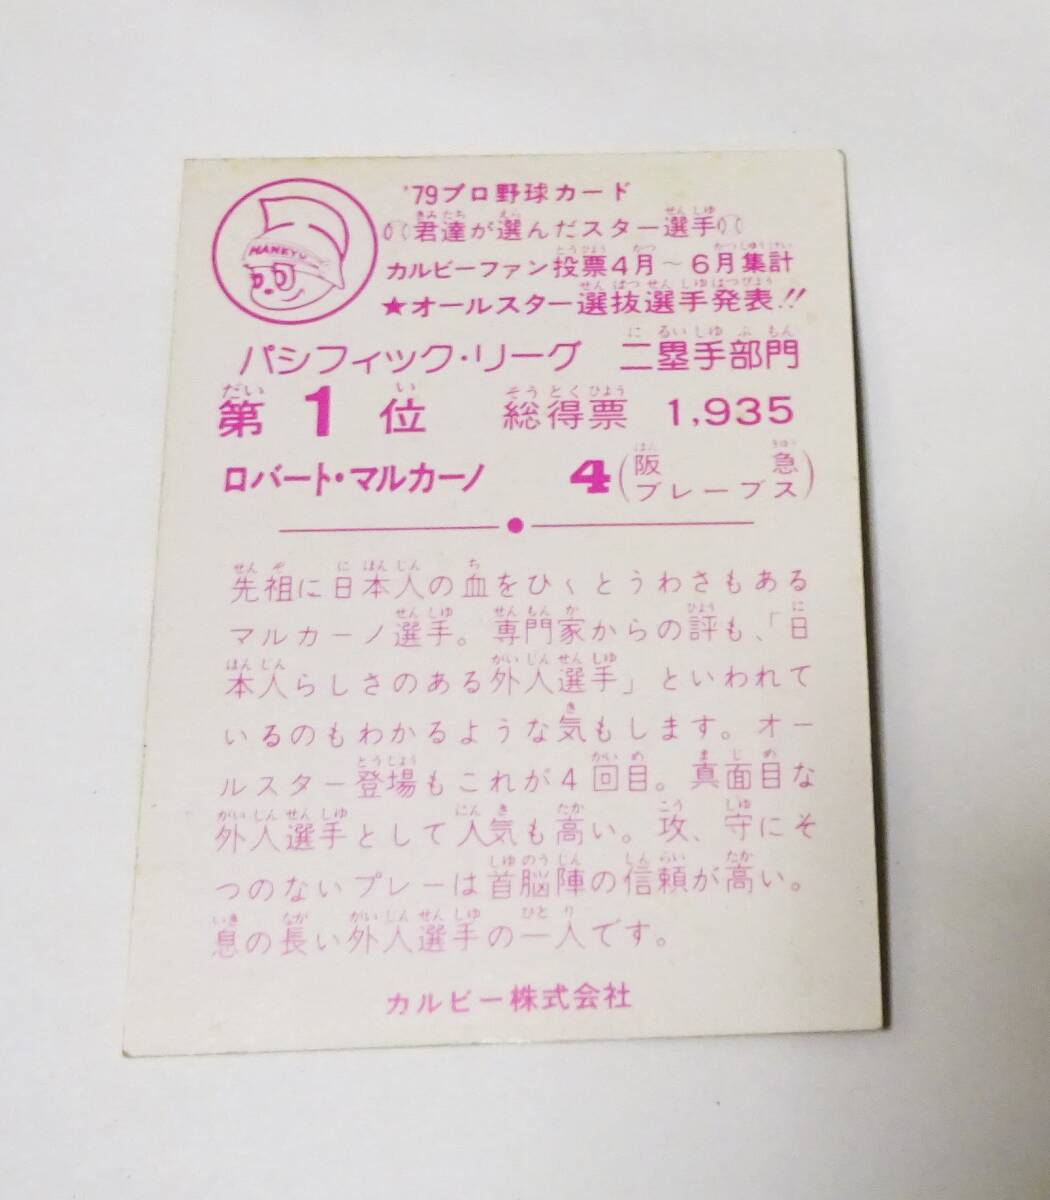 HANKYU
'79プロ野球カード
君達が選んだスター選手
カルビーファン投票4月～6月集計
★オールスター選抜選手発表!!
パシフィック・リーグ 二塁手部門
第1位 総得票 1,935
ロバート・マルカーノ 4(阪急ブレーブス)
先祖に日本人の血をひくとうわさもある
マルカーノ選手。専門家からの評も、「日
本人らしさのある外人選手」といわれて
いるのもわかるような気もします。オー
ルスター登場もこれが4回目。真面目な
外人選手として人気も高い。攻、守にそ
つのないプレーは首脳陣の信頼が高い。
息の長い外人選手の一人です。
カルビー株式会社